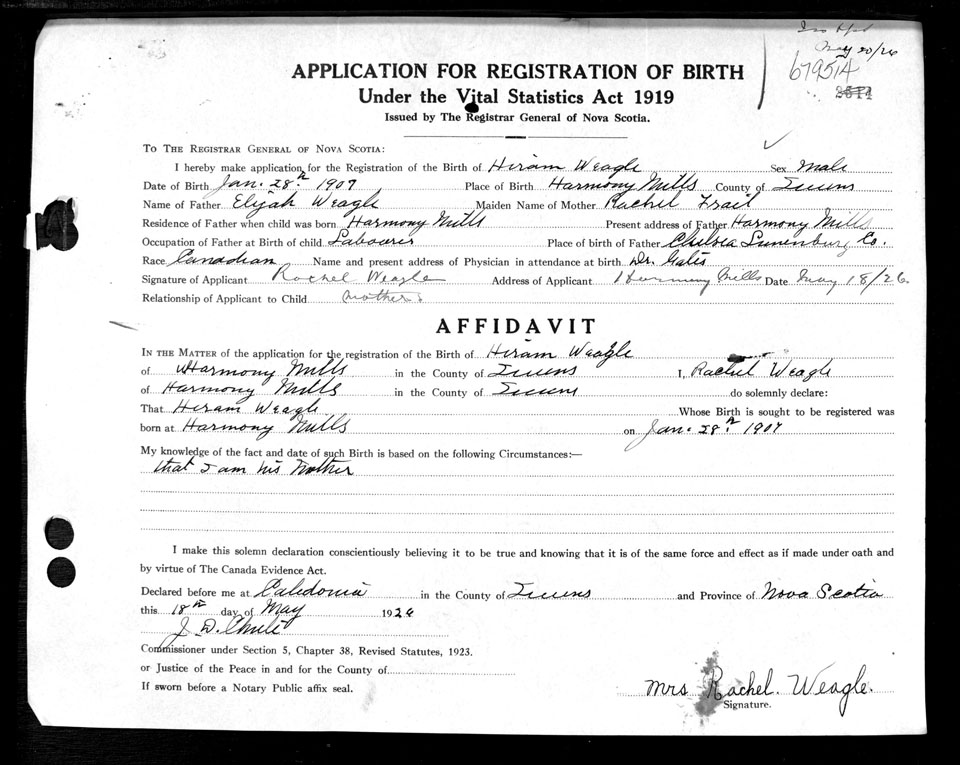 May 20/26
67951A
APPLICATION FOR REGISTRATION OF BIRTH
Under the Vital Statistics Act 1919
Issued by The Registrar General of Nova Scotia.
TO THE REGISTRAR GENERAL OF NOVA SCOTIA:
I hereby make application for the Registration of the Birth of Hiram Weagle Sex Male
Date of Birth Jan. 28th 1907 Place of Birth Harmony Mills County of
Name of Father Elijah Weagle Maiden Name of Mother Rachel Frail
Residence of Father when child was born Harmony Mills Present address of Father Harmony Mills
Occupation of Father at Birth of child Labourer Place of birth of Father Chelsea Lunenburg Co.
Race Canadian Name and present address of Physician in attendance at birth Dr.
Signature of Applicant Rachel Weagle Address of Applicant Harmony Mills Date May 18/26.
Relationship of Applicant to Child Mother
AFFIDAVIT
IN THE MATTER of the application for the registration of the Birth of Hiram Weagle
of Harmony Mills in the County of I, Rachel Weagle
of Harmony Mills in the County of do solemnly declare:
That Hiram Weagle Whose Birth is sought to be registered was
born at Harmony Mills on Jan. 28th 1907
My knowledge of the fact and date of such Birth is based on the following Circumstances:—
that I am his Mother
I make this solemn declaration conscientiously believing it to be true and knowing that it is of the same force and effect as if made under oath and
by virtue of The Canada Evidence Act.
Declared before me at Caledonia in the County of and Province of Nova Scotia
this 18th day of May 1926
J. D.
Commissioner under Section 5, Chapter 38, Revised Statutes, 1923.
or Justice of the Peace in and for the County of
If sworn before a Notary Public affix seal.
Mrs Rachel. Weagle.
Signature.